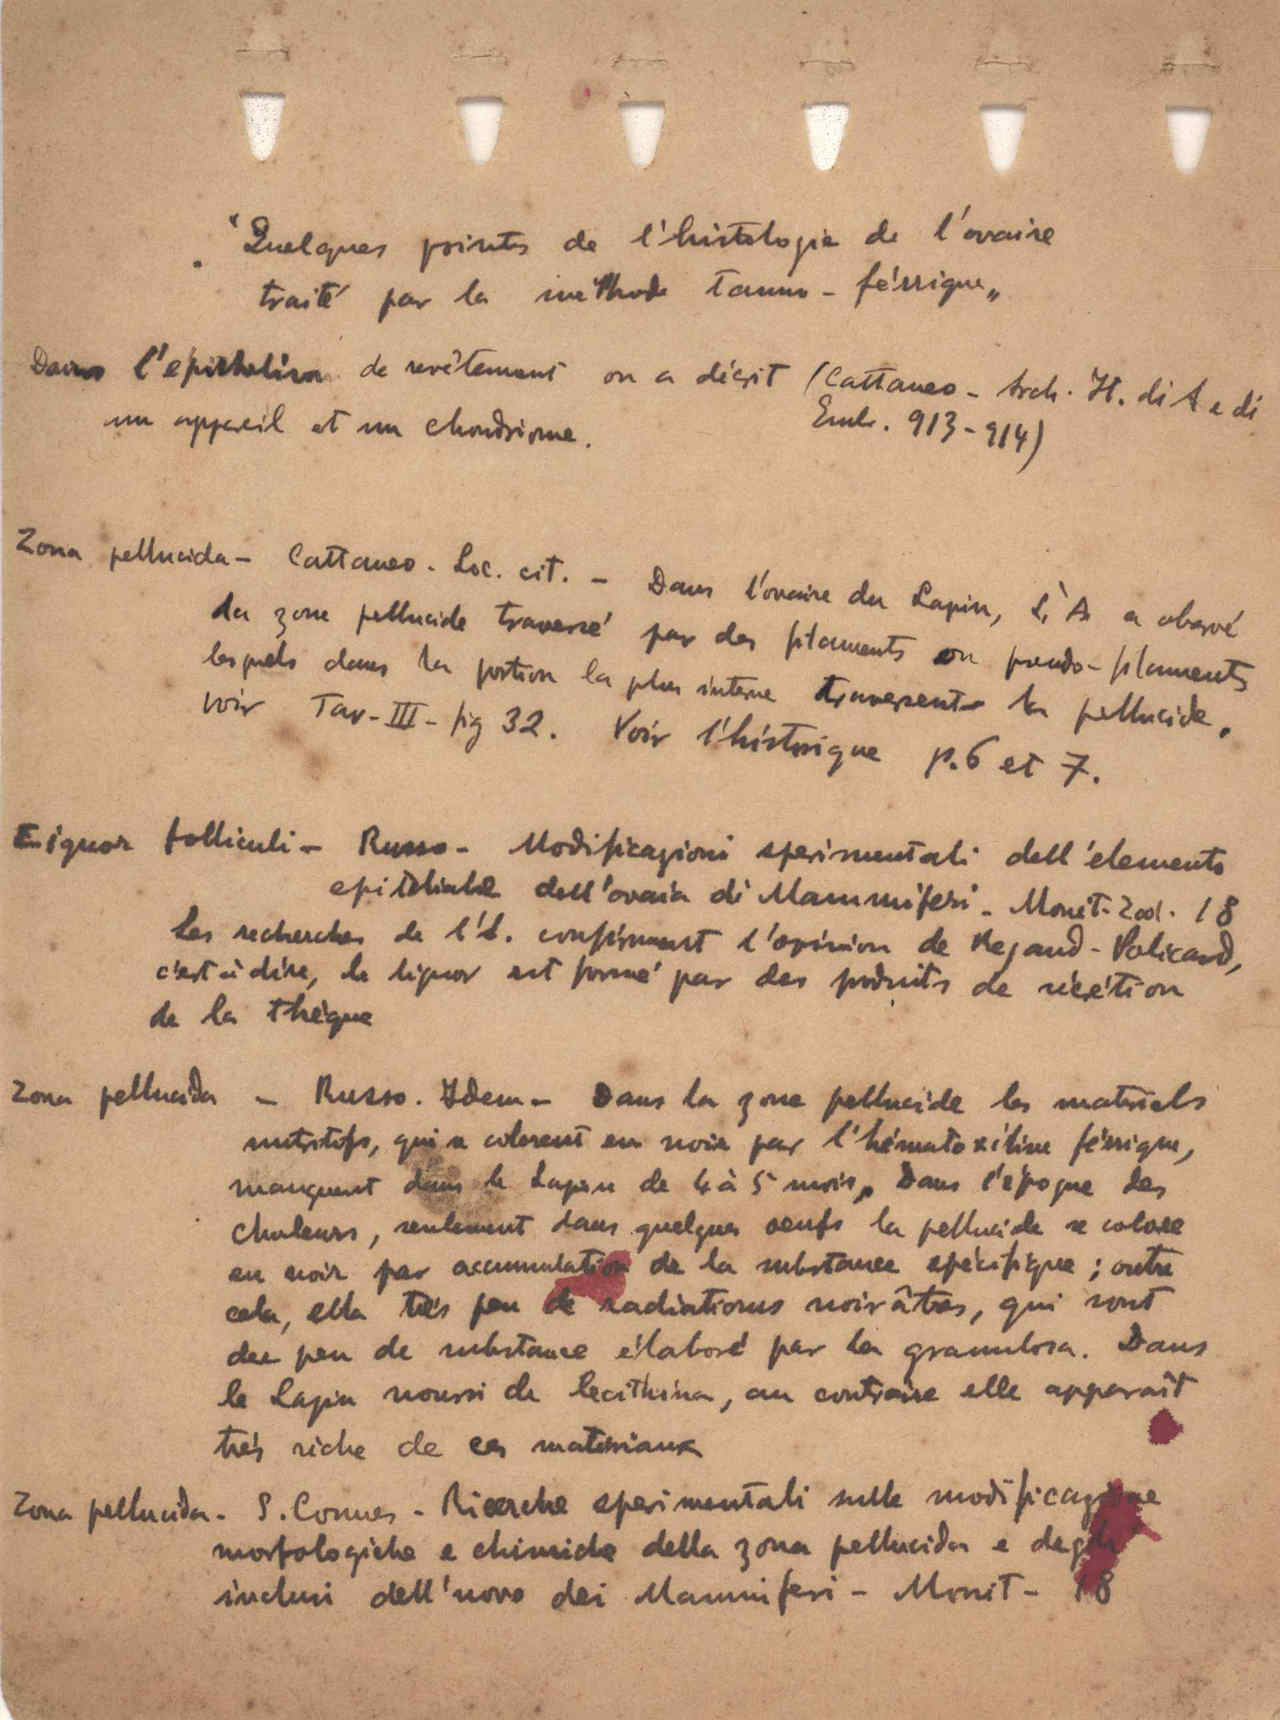 "Quelques points de l'histologie de l'ovaire
traité par la méthode tanno-férrique„
Dans l'epithelium de revêtement on a décrit (Cattaneo - Arch. It. di A e di
Embr. 913-914)
un appareil et un chondriome.
Zona pellucida - Cattaneo. Loc. cit. - Dans l'ovaire du Lapin, L'A a observé
la zone pellucide traversé par des filaments ou pseudo-filaments
lesquels dans la portion la plus interne traversent la pellucide.
Voir Tav-III-fig 32. Voir l'historique p.6 et 7.
Liquor folliculi - Russo - Modificazioni sperimentali dell'elemento
epiteliale dell'ovaia di Mammiferi. Monit. Zool. 18
Les recherches de l'A. confirment l'opinion de Regaud-Policard,
c'est à dire, le liquor est formé par des produits de sécrétion
de la thèque
Zona pellucida - Russo. Idem - Dans la zone pellucide les matériels
nutritifs, qui se colorent en noir par l'hématoxiline férrique,
manquent dans le Lapin de 4 à 5 mois. Dans l'époque des
chaleurs, seulement dans quelques oeufs la pellucide se colore
en noir par accumulation de la substance spécifique; outre
cela, ella très peu de radiations noirâtres, qui sont
des peu de substance élaboré par la granulosa. Dans
le Lapin nourri de lecithina, au contraire elle apparaît
très riche de ces matériaux
Zona pellucida - S. Comes - Ricerche sperimentali sulle modificazione
morfologiche e chimiche della zona pellucida e degli
inclusi dell'uovo dei Mammiferi - Monit - 18